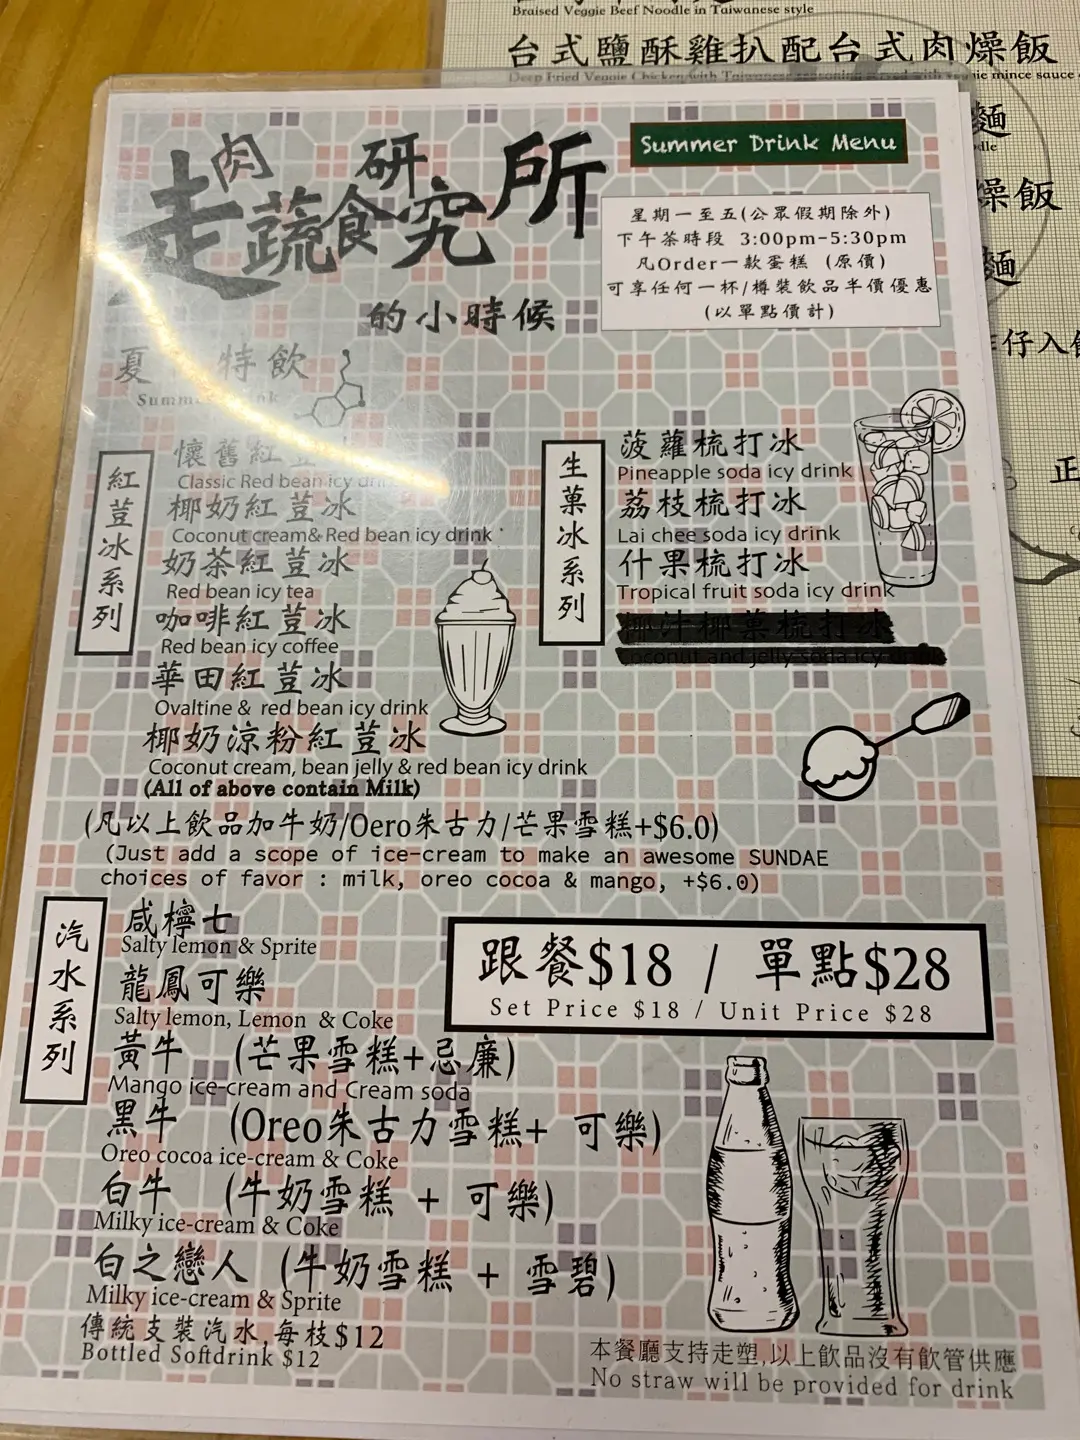 Braised Veggie Beef Noodle in Taiwanese style
台式鹽酥雞扒配台式肉燥飯
麵
燥飯
麵
仔入
正
走肉蔬食研究所
的小時候
Summer Drink Menu
星期一至五(公眾假期除外)
下午茶時段 3:00pm-5:30pm
凡Order一款蛋糕 (原價)
可享任何一杯/樽裝飲品半價優惠
(以單點價計)
夏 特飲
紅荳冰系列
懷舊紅荳
Classic Red bean icy
椰奶紅荳冰
Coconut cream& Red bean icy drink
奶茶紅荳冰
Red bean icy tea
咖啡紅荳冰
Red bean icy coffee
華田紅荳冰
Ovaltine & red bean icy drink
椰奶涼粉紅荳冰
Coconut cream, bean jelly & red bean icy drink
(All of above contain Milk)
生菓冰系列
菠蘿梳打冰
Pineapple soda icy drink
荔枝梳打冰
Lai chee soda icy drink
什果梳打冰
Tropical fruit soda icy drink
椰汁椰菓梳打冰
coconut and jelly soda icy
(凡以上飲品加牛奶/Oero朱古力/芒果雪糕+$6.0)
(Just add a scope of ice-cream to make an awesome SUNDAE
choices of favor : milk, oreo cocoa & mango, +$6.0)
汽水系列
咸檸七
Salty lemon & Sprite
龍鳳可樂
Salty lemon, Lemon & Coke
黃牛 (芒果雪糕+忌廉)
Mango ice-cream and Cream soda
黑牛 (Oreo朱古力雪糕+ 可樂)
Oreo cocoa ice-cream & Coke
白牛 (牛奶雪糕 + 可樂)
Milky ice-cream & Coke
白之戀人 (牛奶雪糕 + 雪碧)
Milky ice-cream & Sprite
傳統支裝汽水,每枝$12
Bottled Softdrink $12
跟餐$18 / 單點$28
Set Price $18 / Unit Price $28
本餐廳支持走塑,以上飲品沒有飲管供應
No straw will be provided for drink